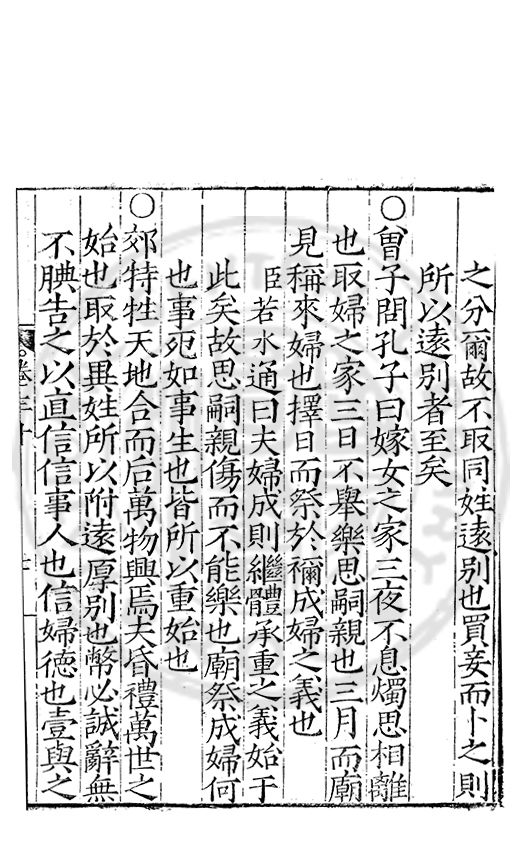 之分爾故不取同姓遠別也買妾而卜之則
所以遠別者至矣
○曾子問孔子曰嫁女之家三夜不息燭思相離
也取婦之家三日不舉樂思嗣親也三月而廟
見稱來婦也擇日而祭於禰成婦之義也
臣若水通曰夫婦成則繼體承重之義始于
此矣故思嗣親傷而不能樂也廟祭成婦何
也事死如事生也皆所以重始也
○郊特牲天地合而后萬物興焉夫昏禮萬世之
始也取於異姓所以附遠厚別也幣必誠辭無
不腆告之以直信信事人也信婦德也壹與之
卷三十